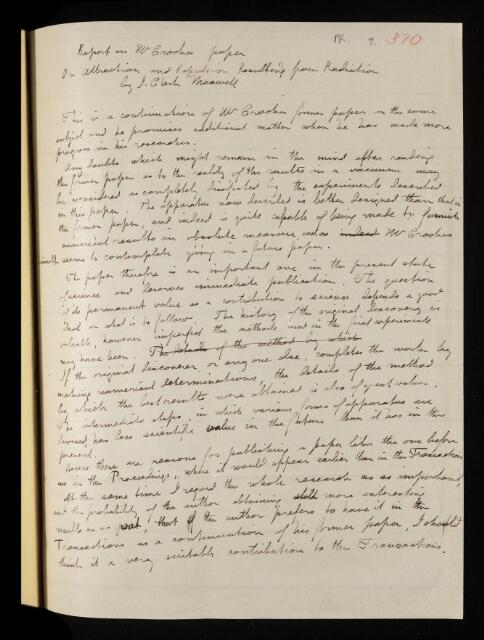 RR. 7. 370
Report on Mr Crookes paper
On Attraction and Repulsion Resulting from Radiation
by J. Clerk Maxwell
This is a continuation of Mr Crookes former paper on the same
subject and he promises additional matter when he has made more
progress in his researches.
Any doubts which might remain in the mind after reading
the former paper as to the reality of the results in a vacuum may
be considered as completely dissipated by the experiments described
in this paper. The apparatus now described is better designed than that in
the former paper, and indeed is quite capable of being made to furnish
numerical results in absolute measure, such as indeed Mr Crookes
himself seems to contemplate giving in a future paper.
The paper therefore is an important one in the present state
of science and deserves immediate publication. The question
of its permanent value as a contribution to science depends a good
deal on what is to follow. The history of the original discovery is
valuable, however imperfect the methods used in the first experiments
may have been. The details of the method by which
If the original discoverer, or any one else, completes the work by
making numerical determinations, the details of the method
by which the best results were obtained is also of great value.
The intermediate steps, in which various forms of apparatus are
devised, has less scientific value in the future than it has in the
present.
Hence there are reasons for publishing a paper like the one before
us in the Proceedings, where it would appear earlier than in the Transactions
At the same time I regard the whole research as so important,
and the probability of the author obtaining still more interesting
results as so great, that if the author prefers to have it in the
Transactions as a continuation of his former paper, I should
think it a very suitable contribution to the Transactions.